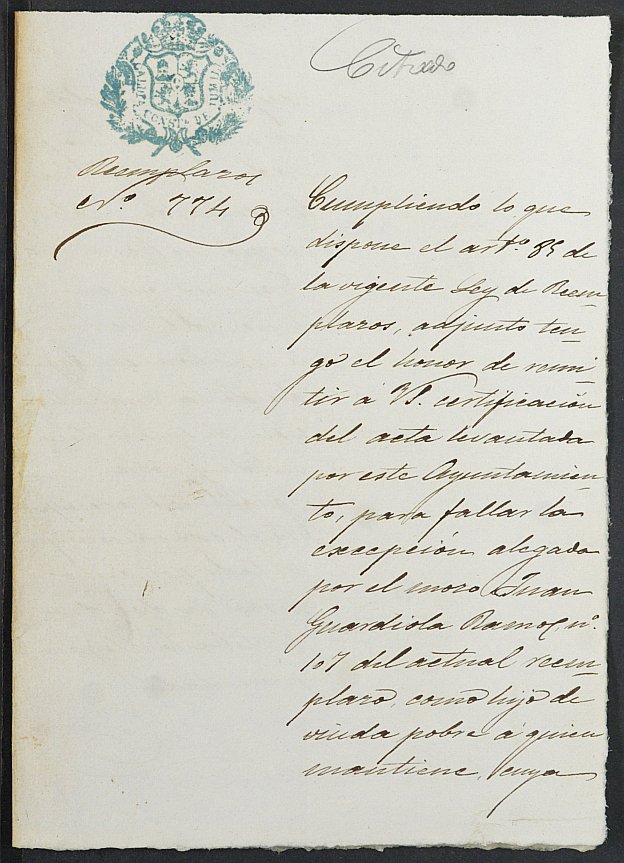 Citado
CONST. DE JUMILLA
Reemplazos
Nº. 774
Cumpliendo lo que
dispone el artº. 85 de
la vigente Ley de Reem-
plazos, adjunto ten-
go el honor de remi-
tir á VS. certificación
del acta levantada
por este Ayuntamien-
to, para fallar la
excepción alegada
por el mozo Juan
Guardiola Ramos, nº.
107 del actual reem-
plazo, como hijo de
viuda pobre á quien
mantiene, cuya